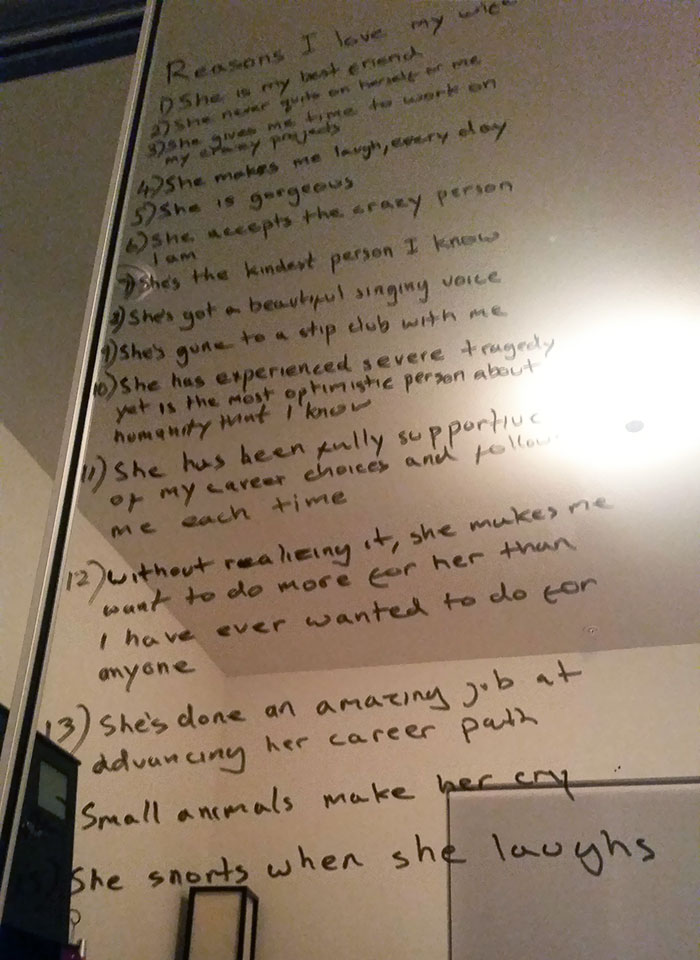 Reasons I love my wife
1) She is my best friend
2) She never quits on herself or me
3) She gives me time to work on
my crazy projects
4) She makes me laugh, every day
5) She is gorgeous
6) She accepts the crazy person
I am
7) She's the kindest person I know
8) She's got a beautiful singing voice
9) She's gone to a stip club with me
10) She has experienced severe tragedy
yet is the most optimistic person about
humanity that I know
11) She has been fully supportive
of my career choices and follow
me each time
12) Without realizing it, she makes me
want to do more for her than
I have ever wanted to do for
anyone
13) She's done an amazing job at
advancing her career path
Small animals make her cry
15) She snorts when she laughs